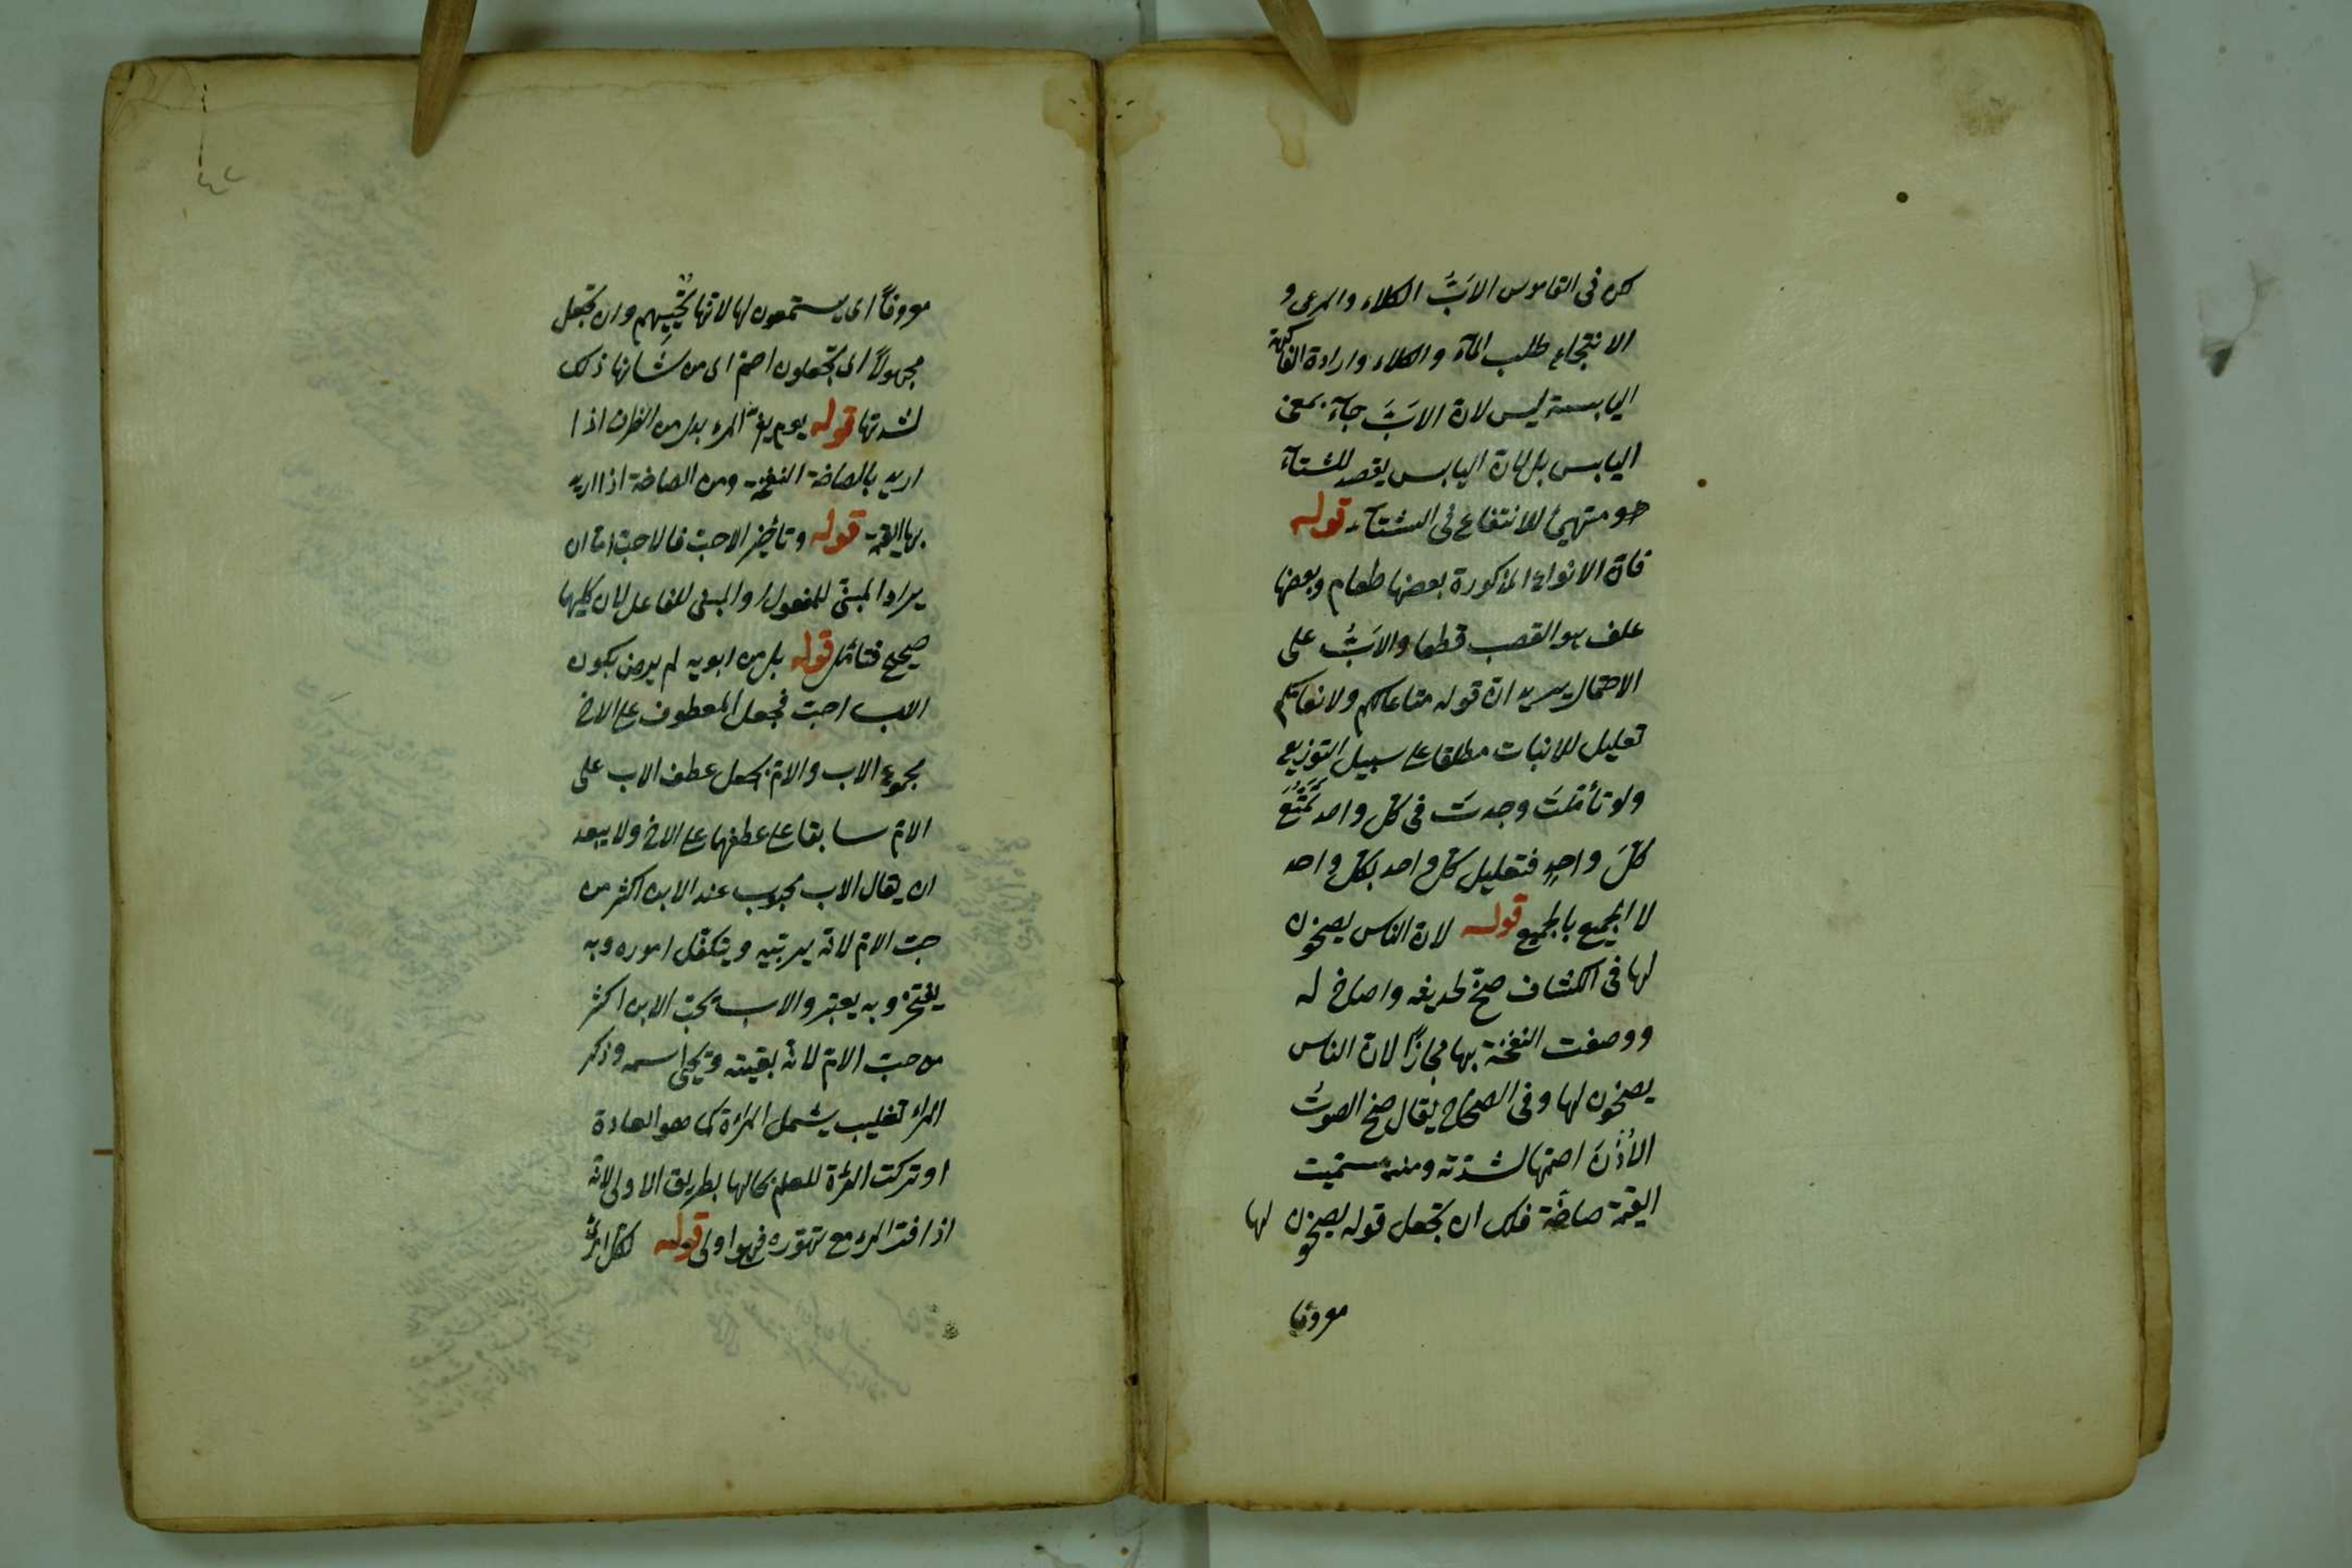 لكن فى القاموس الابّ الكلاء والمرعى و
الانتجاع طلب المآء والكلاء وارادة الفاكهة
اليابسة ليس لان الابّ جآء بمعنى
اليابس بل لان اليابس يقصد للشتآء
هو متهيئ للانتفاع فى الشتآء قوله
فان الانواع المذكورة بعضها طعام وبعضها
علف هو القصب قطعا والابّ على
الاحتمال يريد ان قوله متاعا لكم ولانعامكم
تعليل للانبات مطلقا على سبيل التوزيع
ولو تأملت وجدت فى كل واحد تمتع
كل واحد فتعليل كل واحد بكل واحد
لا الجميع بالجميع قوله لان الناس يصخون
لها فى الكشاف صخ لحديثه واصاخ له
ووصفت النفخة بها مجازا لان الناس
يصخون لها وفى الصحاح يقال صخ الصوت
الأذن اصمها لشدته ومنه سميت
القيمة صاخة فلك ان تجعل قوله يصخون لها
معروفا
معروفاً اى يستمعون لها لانها تحييهم وان تجعل
مجهولاً اى تجعلون اصم اى من شانها ذلك
لشدتها قوله يوم يفرّ المرء بدل من الظرف اذا
اريد بالصاخة النفخة ومن الصاخة اذا اريد
بها القيمة قوله وتأخير الاحبّ فالاحبّ اما ان
يراد المبنى للمفعول او المبنى للفاعل لان كليهما
صحيح فتأمل قوله بل من ابويه لم يرض بكون
الاب احب فجعل المعطوف على الاخ
مجموع الاب والام بجعل عطف الاب على
الام سابقا على عطفهما على الاخ ولا يبعد
ان يقال الاب محبوب عند الابن اكثر من
حبّ الام لانه يربيه ويتكفل اموره وبه
يفتخر وبه يعتبر والاب يحبّ الابن اكثر
من حبّ الام لانه بقيته ويحيى اسمه وذكر
المرء تغليب يشمل المرأة كما هو العادة
او تركت المرأة للعلم بحالها بطريق الاولى لانه
اذا فرّ المرء مع تهوره فهو اولى قوله لكل امرئ